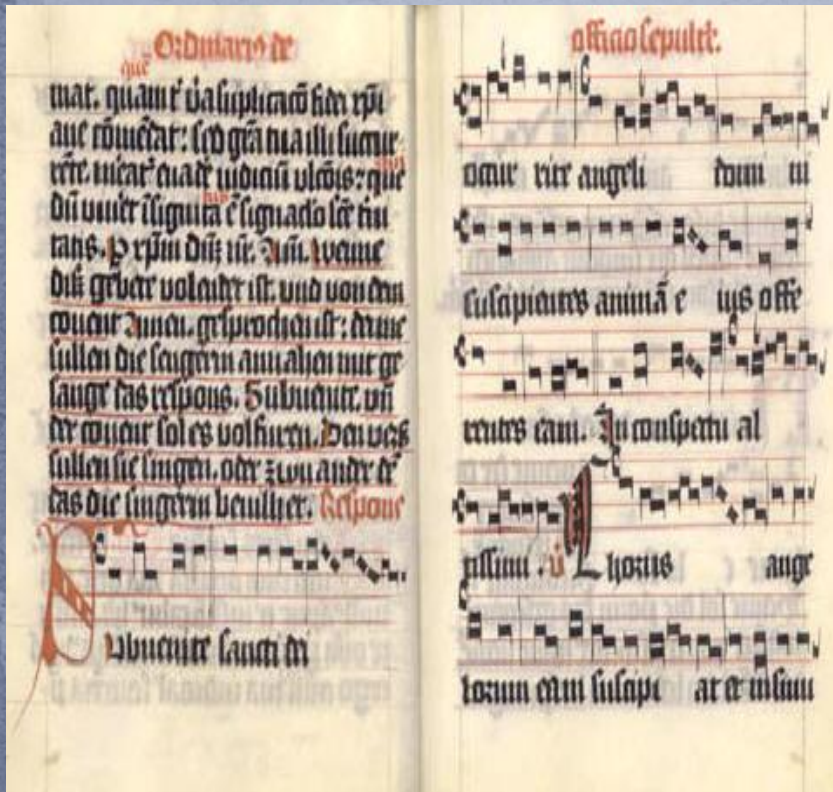 Ordinariū de
que
mat. quam t v̄a suplicacō fidei xpī
ane cōmēdat: sed grā tua illi succur
dū viuer̄ īsignita ē signac̄lo sc̄e tri
tatis. P xpm dn̄z nr̄. Am̄. Wenne
diß gebete volendet ist. vnd von dem
couent Amen. gesprochen ist: denne
sullen die sengerin anuahen mit ge
sange das respons. Subuenite. vn̄
der couent sol es volfuren. Den verß
sullen sie singen. oder zwu ander
das die singerin beuilhet. Respons
Subuenite sancti dei
officio sepultr̄.
occur rite angeli domi ni
suscipientes animā e ius offe
rentes eam. In conspectu al
tissimi. v̄ Chorus ange
lorum eam suscipi at et in sinu